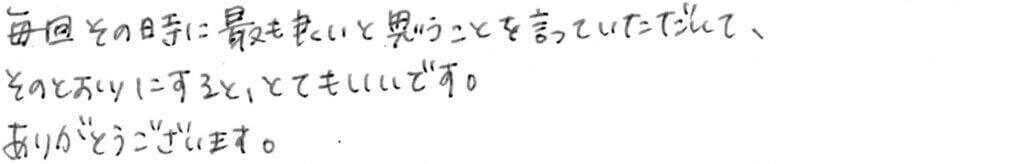 毎回その時に最も良いと思うことを言っていただいて、
そのとおりにすると、とてもいいです。
ありがとうございます。